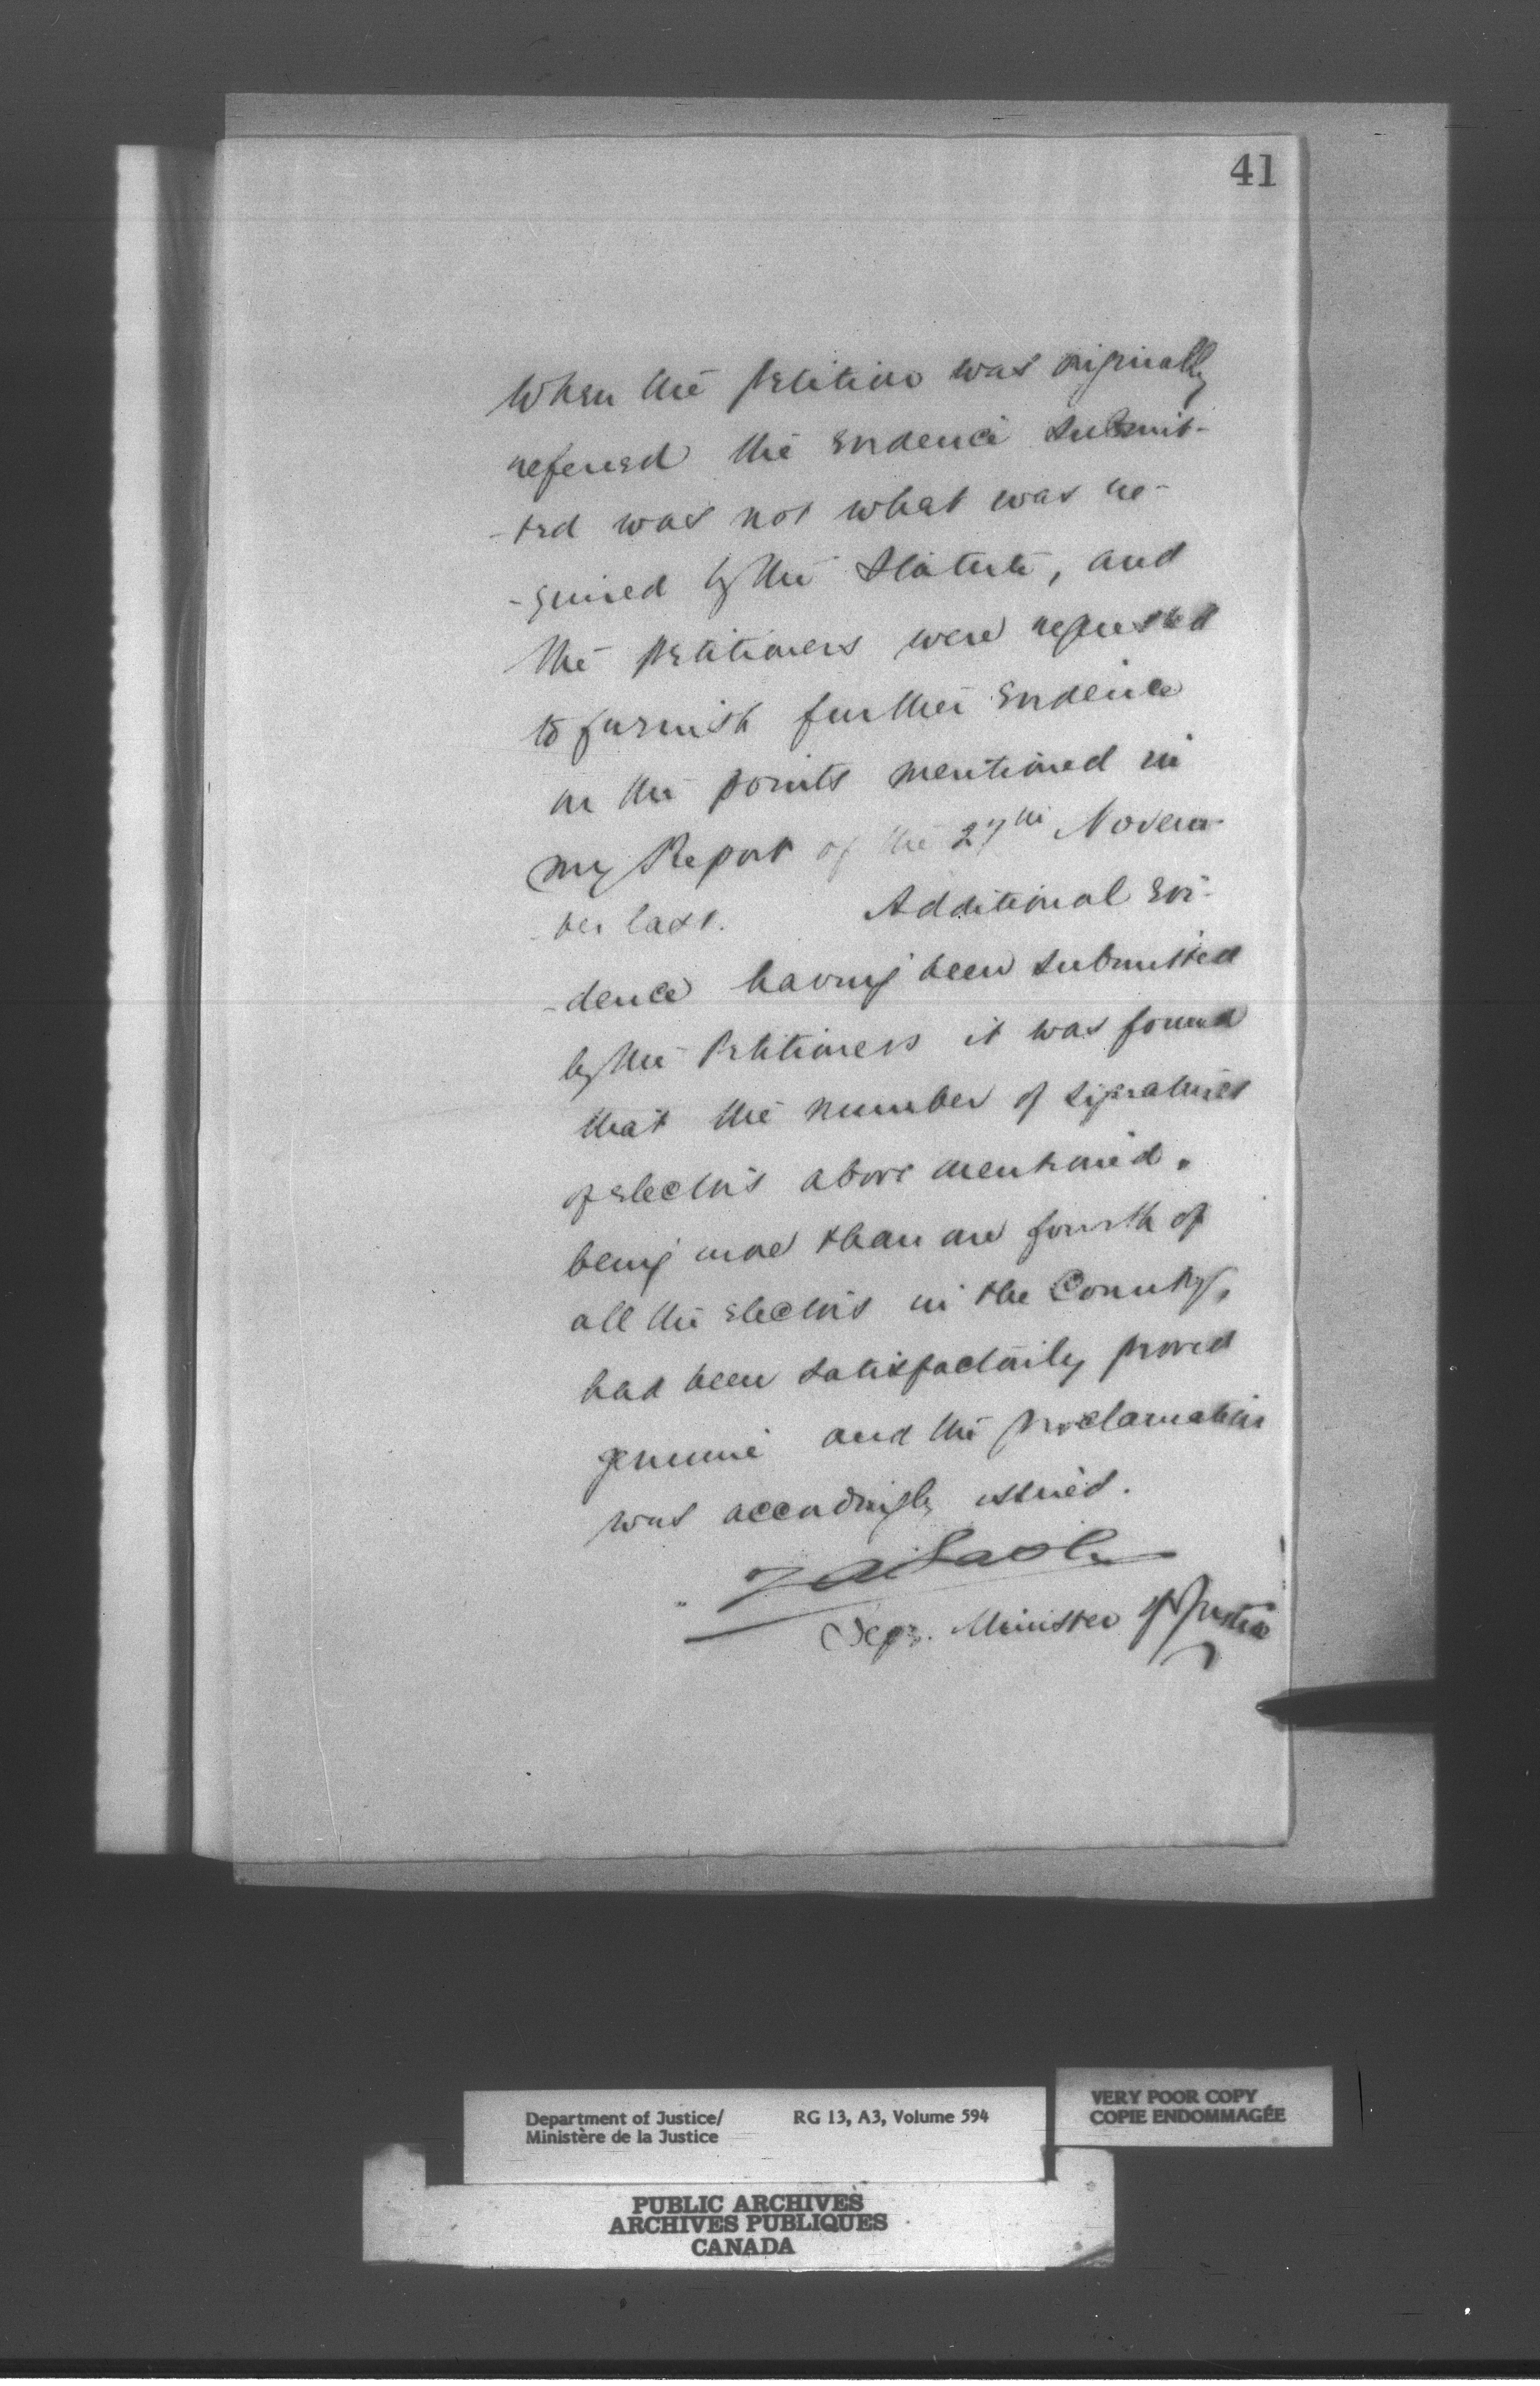 41
When the petition was originally
referred the evidence submit-
-ted was not what was re-
-quired by the Statute, and
the petitioners were requested
to furnish further evidence
on the points mentioned in
my Report of the 27th Novem-
-ber last. Additional evi-
-dence having been submitted
by the Petitioners it was found
that the number of signatures
of electors above mentioned,
being more than one fourth of
all the electors in the County,
had been satisfactorily proved
genuine and the proclamation
was accordingly issued.
Dep. Minister of Justice
Department of Justice/ RG 13, A3, Volume 594
Ministère de la Justice
VERY POOR COPY
COPIE ENDOMMAGÉE
PUBLIC ARCHIVES
ARCHIVES PUBLIQUES
CANADA